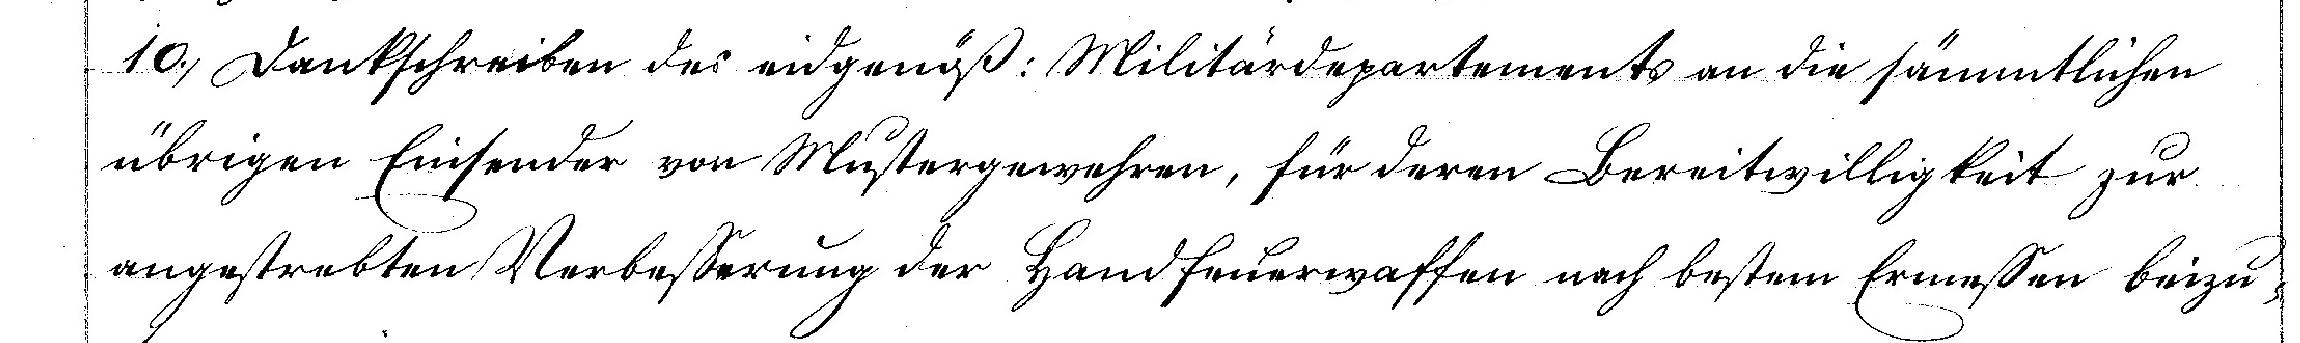 10., Dankschreiben des eidgenöß: Militärdepartements an die sämmtlichen
übrigen Einsender von Mustergewehren, für deren Bereitwilligkeit zur
angestrebten Verbesserung der Handfeuerwaffen nach bestem Ermessen beizu-